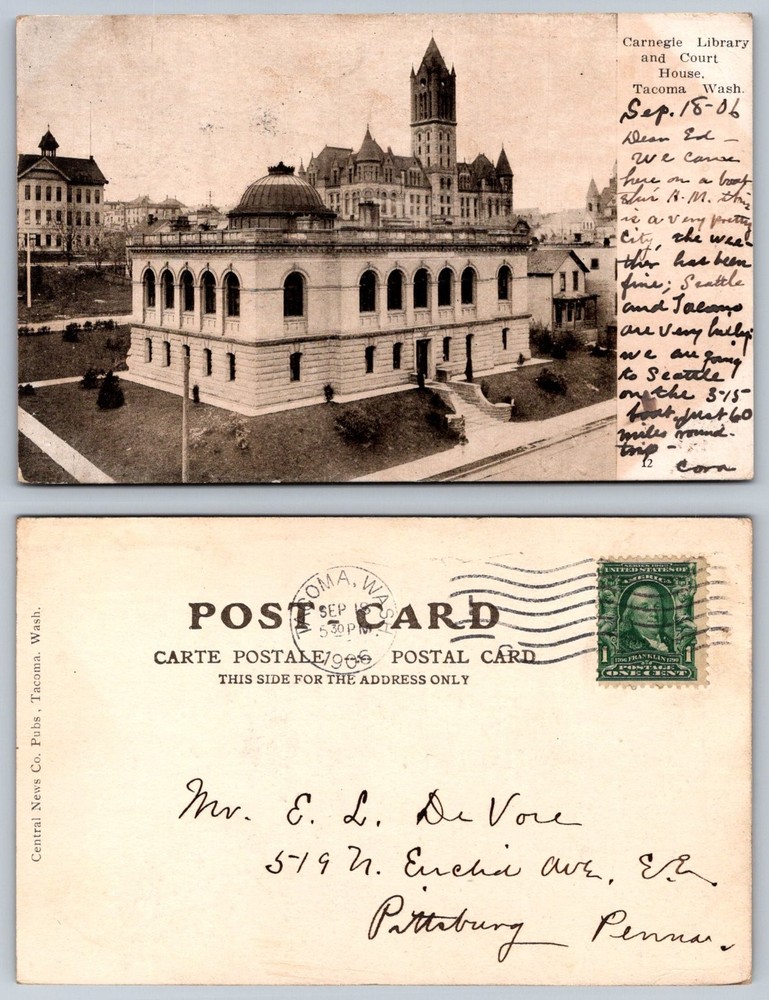 Carnegie Library
and Court
House.
Tacoma Wash.
Sep. 18-06
Dear Ed —
We came
here on a boat
this A.M. this
is a very pretty
City, the wea-
ther has been
fine; Seattle
and Tacoma
are very hilly;
we are going
to Seattle
on the 3-15
boat, just 60
miles round-
trip -
12
Cora
POST-CARD
CARTE POSTALE POSTAL CARD
THIS SIDE FOR THE ADDRESS ONLY
TACOMA, WASH
SEP 18
5 30 PM
1906
SERIES 1902
UNITED STATES OF
AMERICA
1 1
FRANKLIN
POSTAGE
ONE CENT
Central News Co. Pubs, Tacoma. Wash.
Mr. E. L. De Vore
519 N. Euclid Ave, E.E.
Pittsburg Penna.